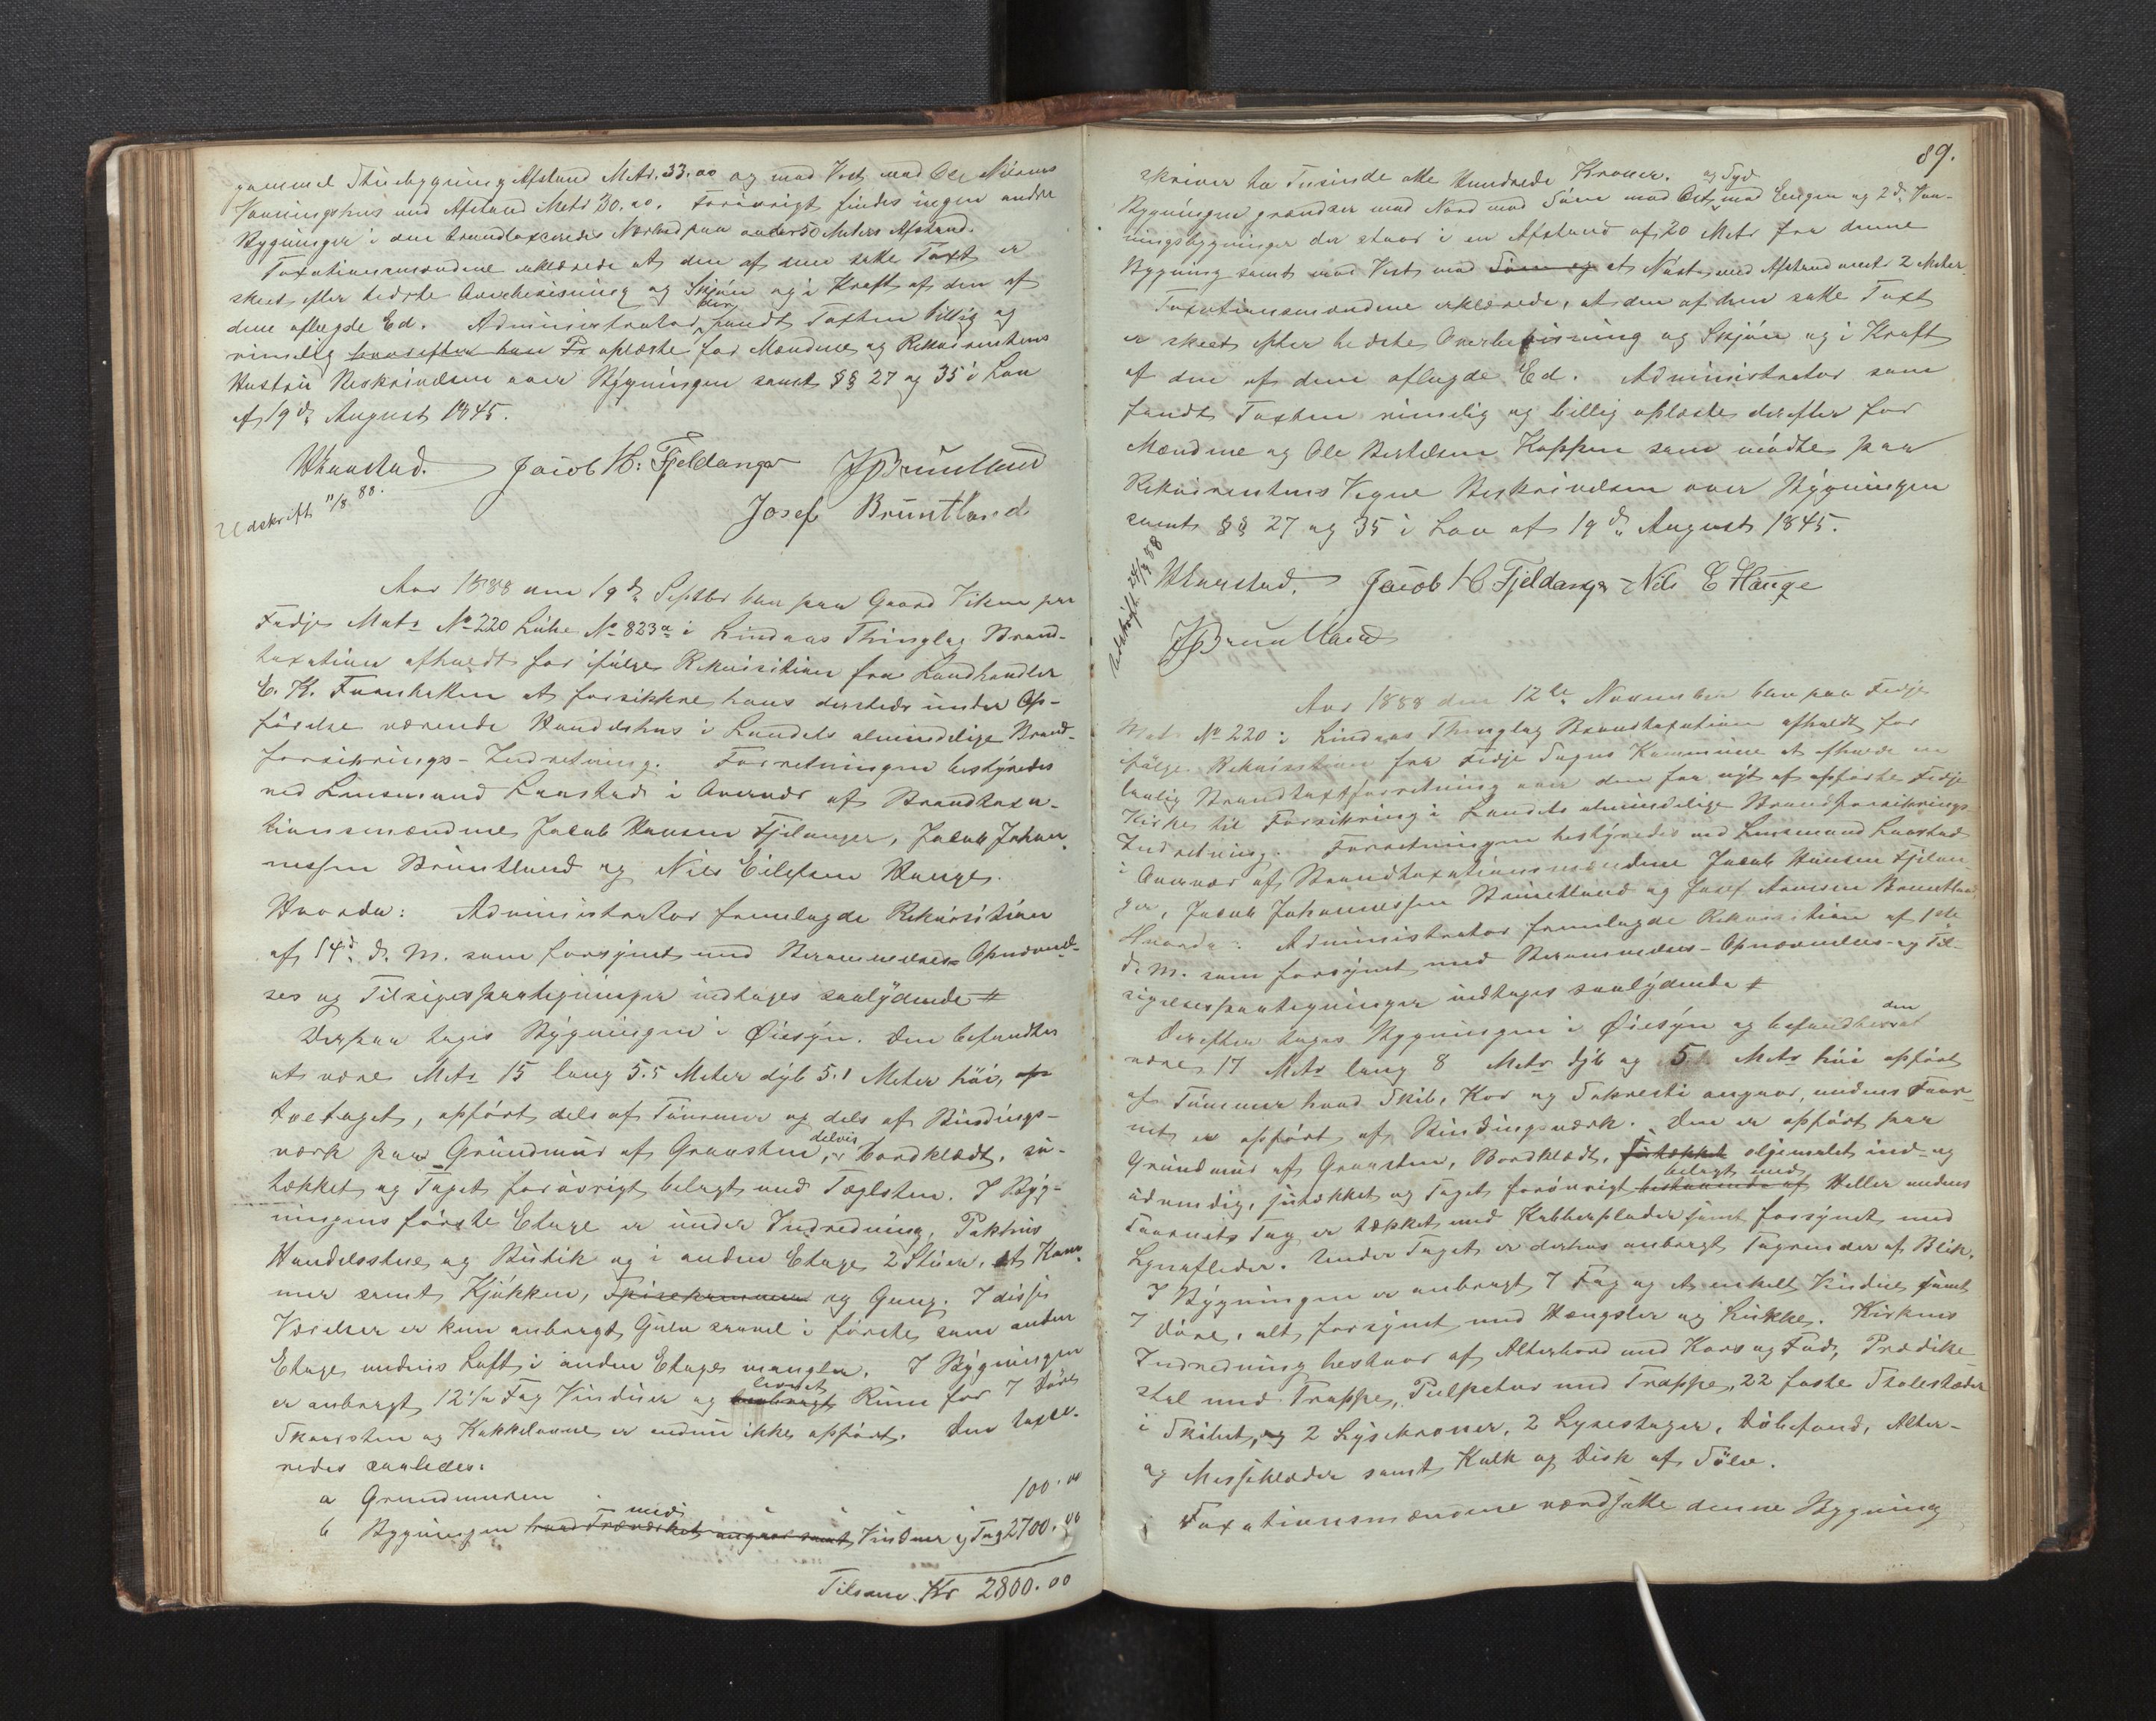 gammel Stuebygning Afstand Metr. 33.00 og mod Vest med Ole Nilsens
Vaaningshus med Afstand Metr 30.00. Forøvrigt findes ingen andre
Bygninger i den brandtaxeredes Nærhed paa under 50 Meters Afstand.
Taxationsmændene erklærede at den af dem satte Taxt er
skeet efter bedste Overbevisning og Skjøn og i Kraft af den af
dem aflagde Ed. Administrator, der fandt Taxten billig og
rimelig hvorefter han Fr oplæste for Mændene og Rekvirentens
Hustru Beskrivelsen over Bygningen samt §§ 27 og 35 i Lov
af 19de August 1845.
Jacob H: Fjeldanger JJBruntland
Josef Bruntland
Udskrift 11/8 88.
Aar 1888 den 19de Septbr blev paa Gaard Viken paa
Fedje Matr No 220 Løbe No 823a i Lindaas Thinglag Brand-
taxation afholdt for ifølge Rekvisition fra Landhandler
at forsikkre hans dersteds under Op-
førelse værende Handelshus i Landets almindelige Brand-
forsikrings-Indretning. Forretningen bestyredes
ved Lensmand Laastad i Overvær af Brandtaxa-
tionsmændene Jakob Hansen Fjelanger, Jakob Johan-
nessen Bruntland og Nils Eilefsen Hauge.
Hvorda: Administrator fremlagde Rekvisition
af 14de d. M. som forsynet med Berammelses- Opnævnel-
ses og Tilsigespaategninger indtages saalydende #
Derpaa toges Bygningen i Øiesyn. Den befandtes
at være Metr 15 lang 5.5 Meter dyb 5.1 Meter høi, op
toetaget, opført dels af Tømmer og dels af Bindings-
værk paa Grundmur af Graasten, er delvis bordklædt, su-
tækket og Taget forøvrigt belagt med Taglsten. I Byg-
ningens første Etage er under Indredning, Pakhus
Handelsstue og Butik og i anden Etage 2 Stuer, et Kam-
mer samt Kjøkken, Spisekammer og Gang. I disse
Værelser er kun anbragt Gulv saavel i første som anden
Etage medens Loft i anden Etage mangler. I Bygningen
er anbragt 12½ Fag Vinduer og anbragt levnet Rum for 7 Døre
Skorsten og Kakkelovne er endnu ikke opført. Den taxe-
redes saaledes:
a Grundmuren 100.00
b Bygningen hvad Træværket angaar samt med Vinduer og Tag 2700.00
Tilsam. Kr 2800.00
89.
skriver to Tusinde otte Hundrede Kroner.
Bygningen grændser mod Nord med Søen mod Øst og Syd med Engen og 2de Vaa-
ningsbygninger der staar i en Afstand af 20 Metr fra denne
Bygning samt mod Vest med Søen og et Nøst med Afstand mest 2 Meter.
Taxationsmændene erklærede, at den af dem satte Taxt
er skeet efter bedste Overbevisning og Skjøn og i Kraft
af den af dem aflagde Ed. Administrator som
fandt Taxten rimelig og billig oplæste derefter for
Mændene og Ole Bertelsen Koppen som mødte paa
Rekvirentens Vegne Beskrivelsen over Bygningen
samt §§ 27 og 35 i Lov af 19de August 1845.
Jacob H Fjeldanger Nils E Hauge
JJBruntland
Udskrift 24/9 88
Aar 1888 den 12te November blev paa Fedje
Matr No 220 i Lindaas Thinglag Brandtaxation afholdt for
ifølge Rekvisition fra Fedje Sogns Kommune at afholde en
lovlig Brandtaxtforretning over den fra nyt af opførte Fedje
Kirke til Forsikring i Landets almindelige Brandforsikrings-
Indretning. Forretningen bestyredes ved Lensmand Laastad
i Overvær af Brandtaxationsmændene Jakob Hansen Fjelan-
ger, Jakob Johannessen Bruntland og Josef Bruntland.
Hvorda: Administrator fremlagde Rekvisition af 1ste
d. M. som forsynet med Berammelses- Opnævnelses- og Til-
sigelsespaategninger indtages saalydende #
Derefter toges Bygningen i Øiesyn og befandtes den at
være 17 Metr lang 8 Metr dyb og 5. Metr høi opført
af Tømmer hvad Skib, Kor og Sakresti angaar, medens Taar-
net er opført af Bindingsværk. Den er opført paa
Grundmur af Graasten, Bordklædt, sutækket oljemalet ind- og
udvendig, sutækket og Taget forøvrigt bestaaende af belagt med Heller medens
Taarnets Tag er tækket med Kobberplader samt forsynet med
Lynafleder. Under Taget er derhos anbragt Tagrender af Blik.
I Bygningen er anbragt 7 Fag og et enkelt Vindue samt
7 Døre, alt forsynet med Hængsler og Lukke. Kirkens
Indredning bestaar af Alterbord med Kors og Fod, Prædike-
stol med Trappe, Pulpetur med Trappe, 22 faste Stolestader
i Skibet, og 2 Lysekroner, 2 Lysestager, Døbefond, Alter-
og Messeklæder samt Kalk og Disk af Sølv.
Taxationsmændene værdsatte denne Bygning